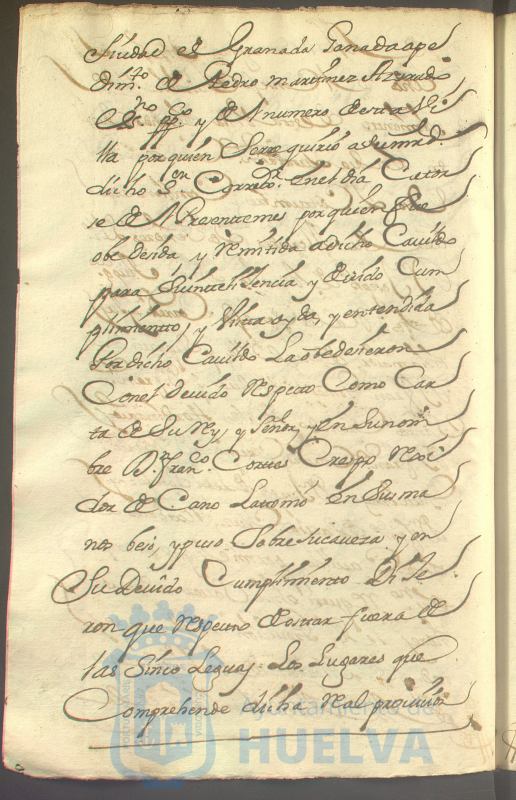 Ciudad de Granada Ganada a pe
dim.to de Pedro Martinez Alvarado
SS.no pp.co y del numero de esta Vi
lla por quien Se rrequirio a su mrd.
dicho S.or Correx.or en el dia Cator
se del Presente mes por quien fue
obedesida y remitida a dicho Cavildo
para Su inteelisencia y devido Cum
plimiento, y Vista oyda, y entendida
Por dicho Cavildo La obedesieron
Con el devido Respecto Como Car
ta de Su Rey, y Señor, y en Su nom
bre D.n Fran.co Cortes Crespo Rexi
dor de Cano La tomó en Sus ma
nos beso, y puso Sobre su caveza y en
Su Devido Cumplimiento Dixe
ron que respecto de estar fuera de
las Sinco Leguas Los Lugares que
Comprehende dicha Real provision
Ayuntamiento de
HUELVA